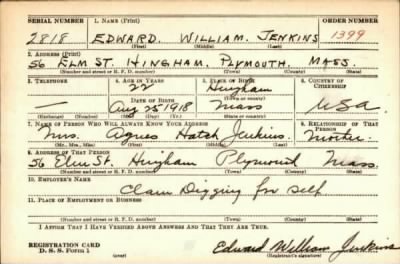 SERIAL NUMBER 1. NAME (Print) ORDER NUMBER
2818 EDWARD. WILLIAM. JENKINS 1399
(First) (Middle) (Last)
2. ADDRESS (Print)
56 ELM ST. HINGHAM, PLYMOUTH, MASS.
(Number and street or R. F. D. number) (Town) (County) (State)
3. TELEPHONE 4. AGE IN YEARS 5. PLACE OF BIRTH 6. COUNTRY OF CITIZENSHIP
22 Hingham
DATE OF BIRTH (Town or county)
— Aug 25 1918 Mass USA
(Exchange) (Number) (Mo.) (Day) (Yr.) (State or country)
7. NAME OF PERSON WHO WILL ALWAYS KNOW YOUR ADDRESS 8. RELATIONSHIP OF THAT PERSON
Mrs. Agnes Hatch Jenkins. Mother.
(Mr., Mrs., Miss) (First) (Middle) (Last)
9. ADDRESS OF THAT PERSON
56 Elm St. Hingham Plymouth Mass.
(Number and street or R. F. D. number) (Town) (County) (State)
10. EMPLOYER'S NAME
Clam Digging for self
11. PLACE OF EMPLOYMENT OR BUSINESS
(Number and street or R. F. D. number) (Town) (County) (State)
I AFFIRM THAT I HAVE VERIFIED ABOVE ANSWERS AND THAT THEY ARE TRUE.
REGISTRATION CARD
D. S. S. Form 1 Edward William Jenkins
(Registrant's signature)